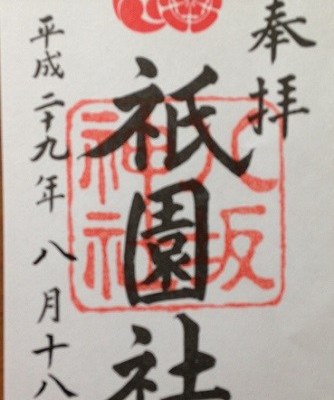 奉拝
祇園社
八坂
神社
平成二十九年八月十八